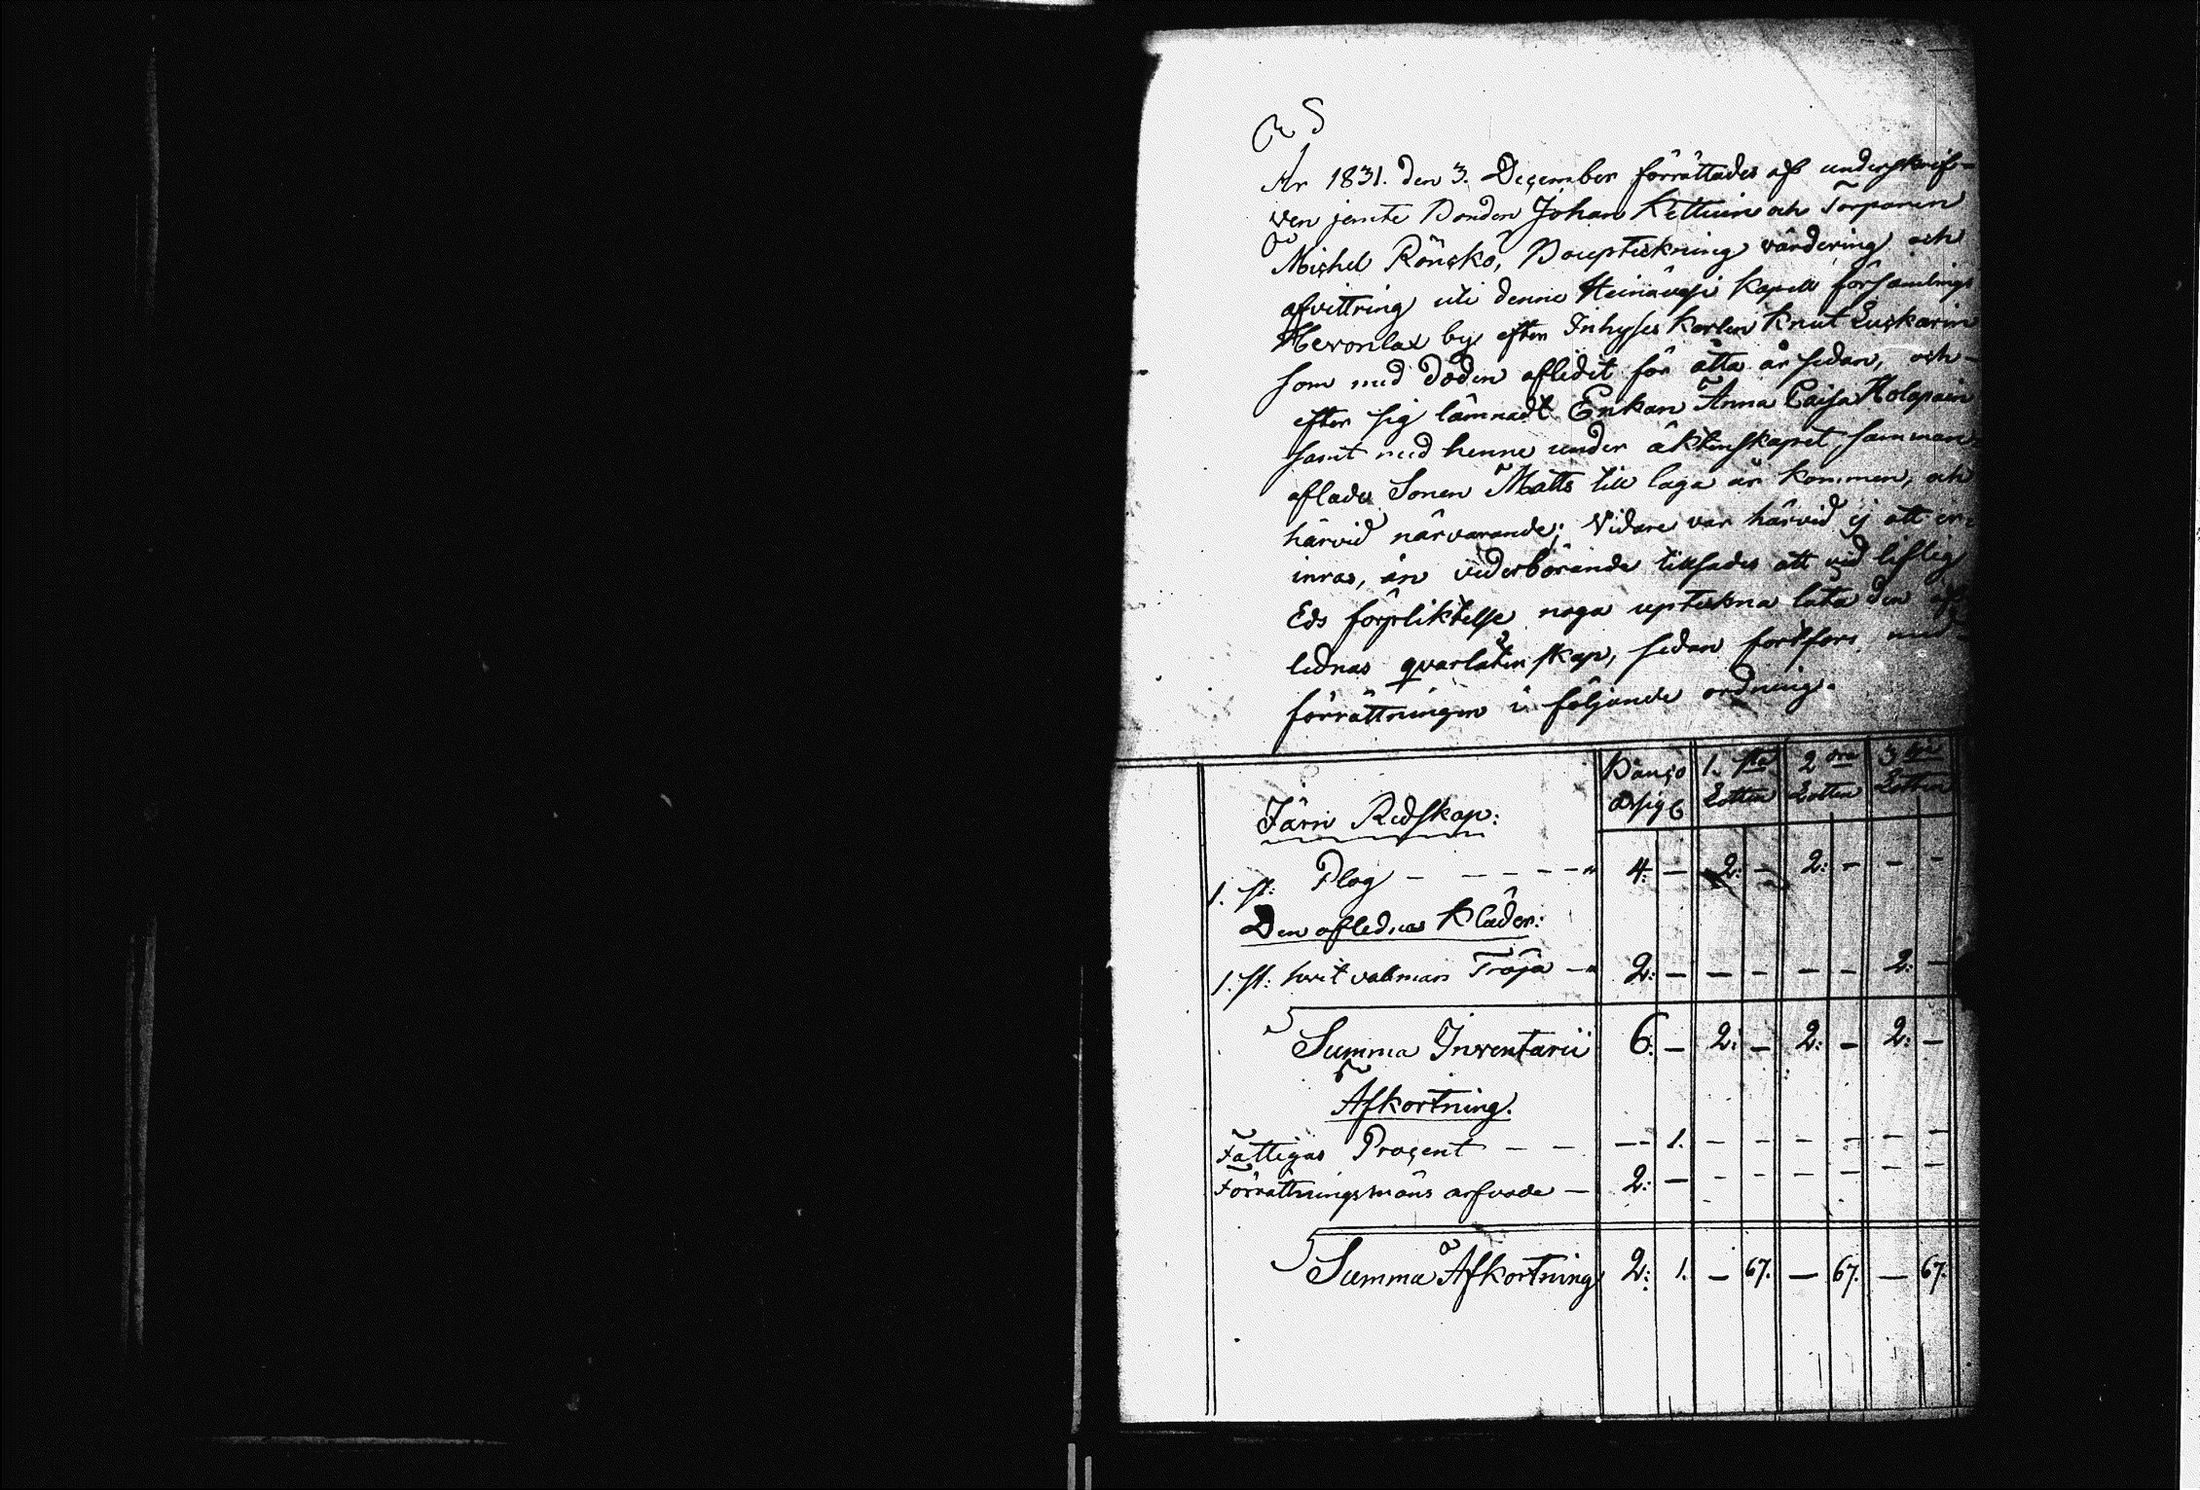 År 1831. den 3. December förrättades af underskrif-
ven jemte Bonden Johan Kettuin och Torparen
Michel Rönckö, Boupteckning värdering och
afvittring uti denne Heinävesi Kapell församlings
Heronlax by efter Inhyses Karlen Knut Luckarin
som med döden aflidit för åtta år sedan, och
efter sig lämnadt Enkan Anna Caisa Holopain
samt med henne under äktenskapet samman-
aflade Sonen Matts till laga år kommen, och
härvid närvarande; Vidare var härvid ej att er-
inras, än vederbörande tillsades att vid liflig
Eds förpliktelse noga uptekna låta den af-
lednas qvarlåtenskap, sedan fortfors med
förrättningen i följande ordning.
Banco Assig 1. sta Lotten 2 dra Lotten 3 dje Lotten
Järn Redskap:
1. st: Plog - - - - - " 4: - 2: - 2: - - -
Den aflednas Kläder:
1. st: hvit vallmars Tröja - " 2: - - - - - 2: -
Summa Inventarii 6: - 2: - 2: - 2: -
Afkortning.
Fattigas Procent - - - - 1. - - - - - -
Förrättningsmäns arfvode - 2: - - - - - - -
Summa Afkortning 2: 1. - 67. - 67. - 67.